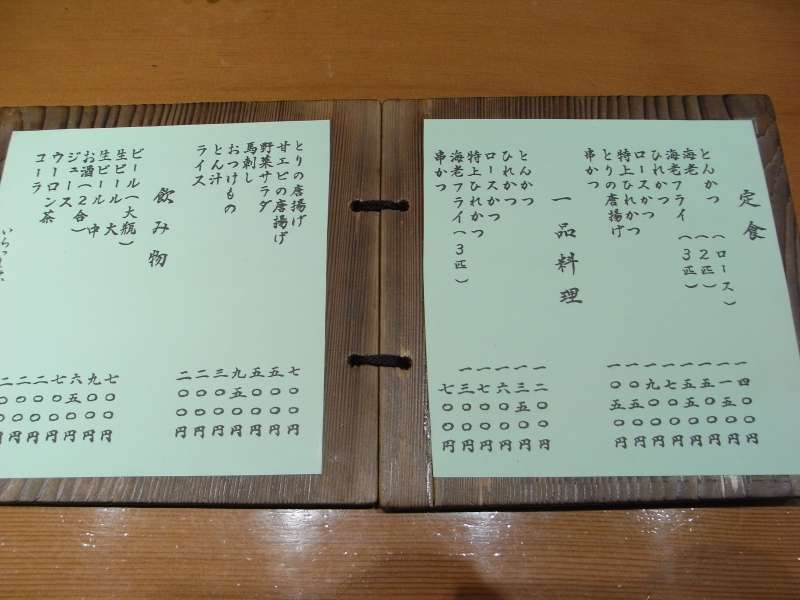 定食
とんかつ（ロース） 一四〇〇円
海老（２匹） 一一五〇円
海老フライ（３匹） 一五〇〇円
ひれかつ 一五五〇円
ロースかつ 一七〇〇円
特上ひれかつ 一九〇〇円
とりの唐揚げ 一〇五〇円
串かつ 一〇五〇円
一品料理
とんかつ 一二〇〇円
ひれかつ 一三五〇円
ロースかつ 一六〇〇円
特上ひれかつ 一七〇〇円
海老フライ（３匹） 一三〇〇円
串かつ 七〇〇円
とりの唐揚げ 七〇〇円
甘エビの唐揚げ 五〇〇円
野菜サラダ 五〇〇円
馬刺し 九五〇円
おつけもの 三〇〇円
とん汁 二〇〇円
ライス 二〇〇円
飲み物
ビール（大瓶） 七〇〇円
生ビール 大 九〇〇円
生ビール 中 六五〇円
お酒（２合） 七〇〇円
ジュース 二〇〇円
ウーロン茶 二〇〇円
コーラ 二〇〇円